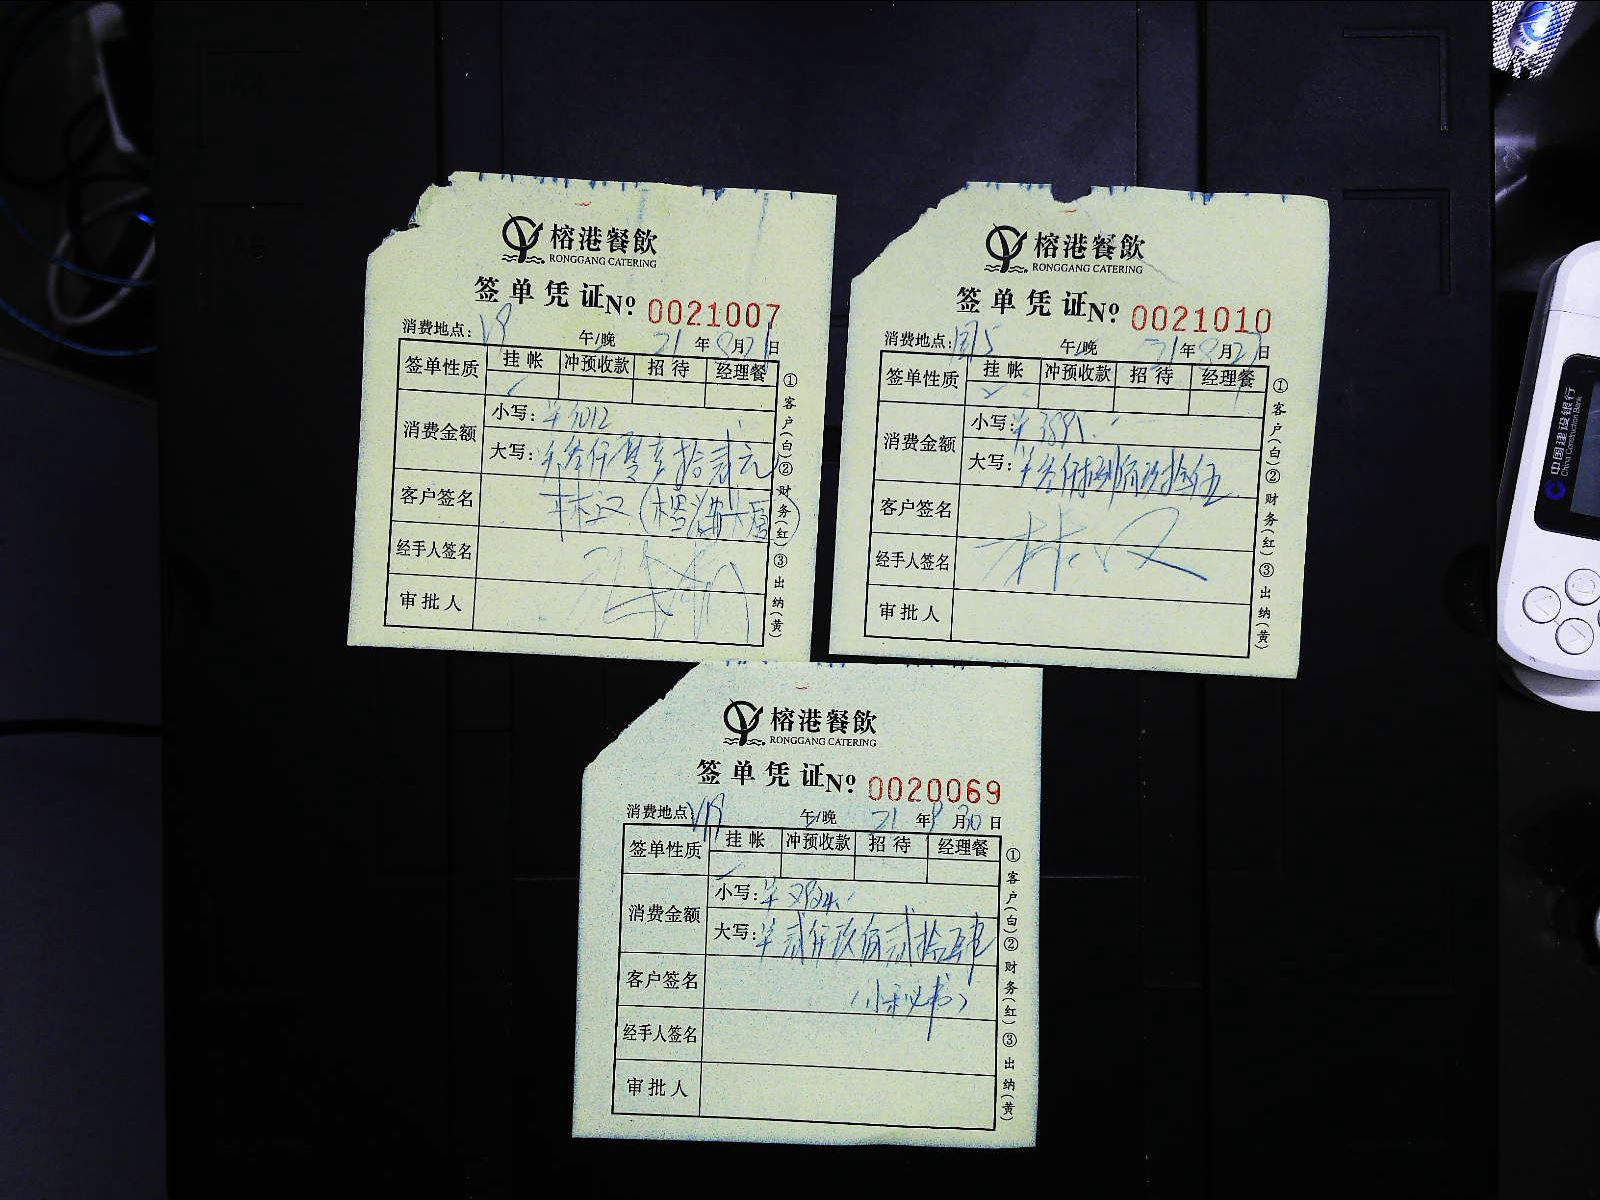 榕港餐飲
RONGGANG CATERING
签单凭证 Nº 0021007
消费地点: V9 午/晚 21年8月21日
签单性质 挂帐 冲预收款 招待 经理餐
消费金额 小写: ¥3012
大写: ¥叁仟零壹拾贰元
客户签名 林汉
经手人签名
审批人
①客户(白)②财务(红)③出纳(黄)
榕港餐飲
RONGGANG CATERING
签单凭证 Nº 0021010
消费地点: 午/晚 21年8月27日
签单性质 挂帐 冲预收款 招待 经理餐
消费金额 小写: ¥3895
大写: ¥叁仟捌佰玖拾伍
客户签名
经手人签名 林汉
审批人
①客户(白)②财务(红)③出纳(黄)
榕港餐飲
RONGGANG CATERING
签单凭证 Nº 0020069
消费地点: V19 午/晚 21年8月30日
签单性质 挂帐 冲预收款 招待 经理餐
消费金额 小写: ¥2924
大写: ¥贰仟玖佰贰拾肆
客户签名 (小秘书)
经手人签名
审批人
①客户(白)②财务(红)③出纳(黄)
中国建设银行
China Construction Bank